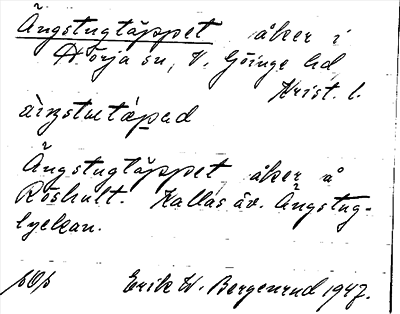 Ängstugtäppet åker i
Nörja sn, V. Göinge hd
Krist. l.
Ängstugtäppet åker å
Röshult. Kallas äv. Ängstug-
lyckan.
Erik W. Bergenrud 1947.